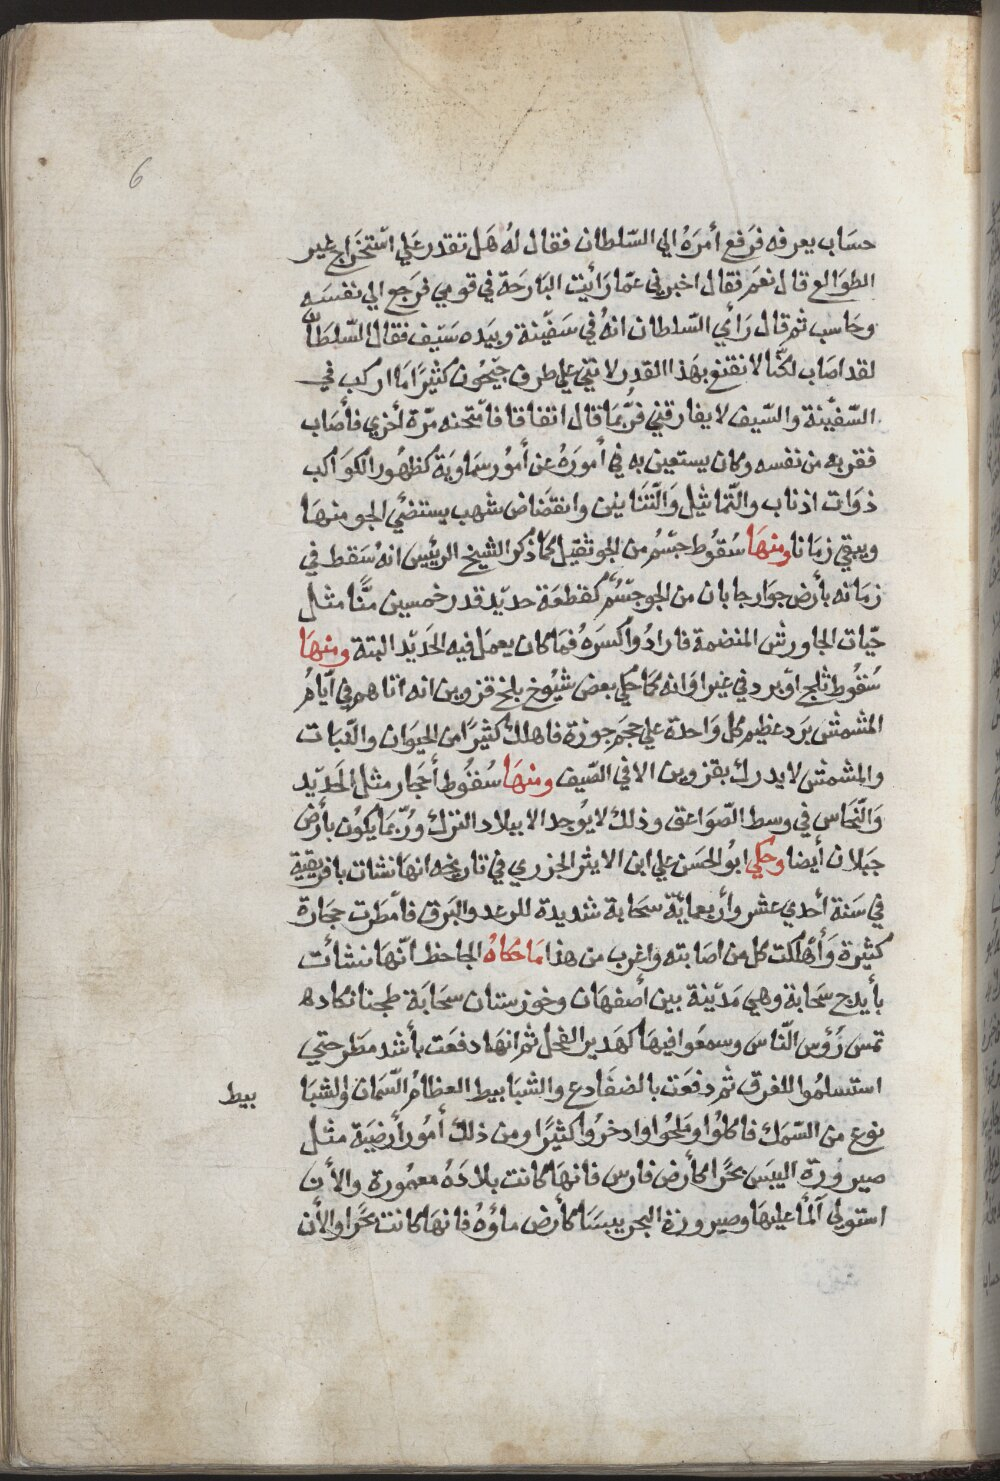 6
حسَاب يعرفه فرَفع أمرَهُ الي السّلطان فقال لهُ هَل تقدر عَلي اسْتخرَاج غير
الطوَالع قال نعَم فقال اخبرني عمّا رَأيْت البَارحَة في قومي فرَجع الي نفسَه
وحَاسب ثم قال رَأي السّلطان انهُ في سَفيْنة وبيَده سَيْف فقال السّلطَانُ
لقد اصَاب لكنّا لا نقنع بهَذا القدر لانني علي طرف جيْحُون كثيْرًا مَا اركب في
السّفيْنة والسّيف لا يفارقني فرُبّمَا قال اتفاقا فامْتحنه مرّة أخري فأصَاب
فقربه من نفسه وكان يستعين به في أمورَهُ عن أمُور سمَاويَة كظهُور الكوَاكب
ذوَات اذناب والتّماثيْل وَالتّنَانين وانقضَاض شهب يستضيْ الجو منهَا
ويبقي زمَانا ومنهَا سُقوُط جسْمُ من الجو ثقيْل كمَا ذكر الشيخ الرييْس انهُ سَقط في
زمَانه بأرض جوَارجابان من الجو جسْمُ كقطعَة حديْد قدر خمسين منًّا مثل
حبّات الجاورش المنضمة فارادُوا كسرَهُ فمَا كان يعمَل فيه الحَديْد البتة ومنهَا
سُقُوط ثلج أوْ برد في غير اوَانه كمَا حكي بعض شيُوخ بلخ قزوين انه اتاهم في أيّام
المشمش بَرَد عظيم كل وَاحدة علي حجَم جوزة فاهلك كثيرًا من الحيَوان والنّبات
والمشمش لا يدرك بقزوين الا في الصّيف ومنهَا سُقوُط أحجَار مثل الحَديْد
وَالنّحَاس في وسط الصّوَاعق وذلك لا يوُجد الا ببلاد الترك ورُبّمَا يكوُن بأرْض
جيَلان أيضا وحكي ابوُ الحسَن علي ابن الاثير الجزري في تاريخه انهَا نشات بافريقية
في سَنة أحدي عشر وأربعمايْة سحَابة شديدة للرعد والبَرق فأمطَرت حجَارة
كثيْرة وَأهْلكت كل من اصَابته واغرب من هذا مَا حَكاهُ الجاحظ انّهَا نشأت
بأيدج سحَابة وهي مَديْنة بين أصفهَان وخوزستان سحَابَة طخنا تكاده
تمس رُؤس النّاس وسمعَوا فيهَا كهَدير الفحل ثم انهَا دفعَت بأشد مطَر حتي
استسلمُوا للغرق ثم دفعَت بالضفَادع والشبَابيط العظامُ السّمَان والشبَا
بيط
نوع من السّمَك فاكلوُا ومَلحُوا وادخرُوا كثيرًا ومن ذلك أمُور أرضيَة مثل
صيرورة اليبَس بحْرًا كأرض فارس فانهَا كانت بلادَهُ معمُورة والأن
استولي ألمأ عليهَا وصيرورة البحر يبسَا كأرض ماؤهُ فانهَا كانت بحْرًا والأن